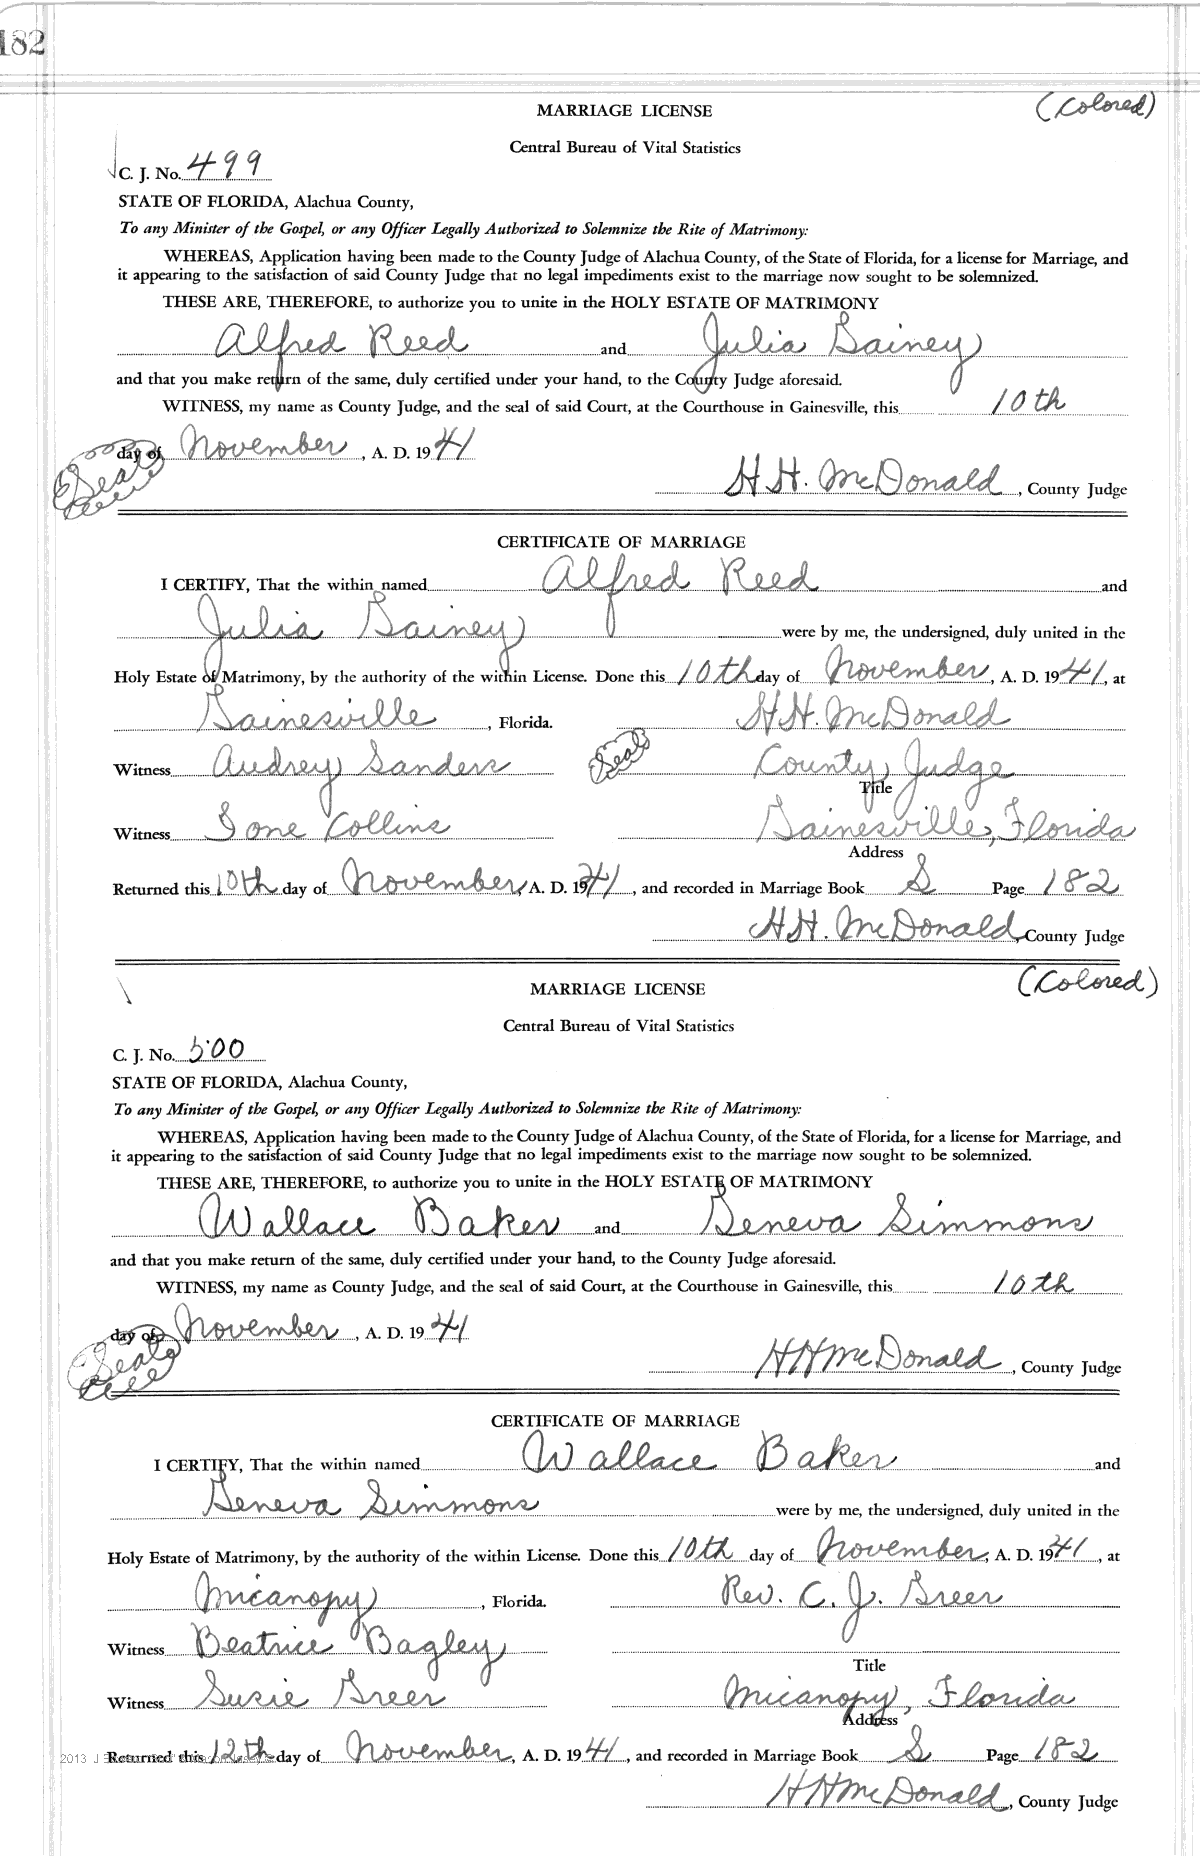 182
MARRIAGE LICENSE (Colored)
Central Bureau of Vital Statistics
C. J. No. 499
STATE OF FLORIDA, Alachua County,
To any Minister of the Gospel, or any Officer Legally Authorized to Solemnize the Rite of Matrimony:
WHEREAS, Application having been made to the County Judge of Alachua County, of the State of Florida, for a license for Marriage, and
it appearing to the satisfaction of said County Judge that no legal impediments exist to the marriage now sought to be solemnized.
THESE ARE, THEREFORE, to authorize you to unite in the HOLY ESTATE OF MATRIMONY
Alfred Reed and Julia Gainey
and that you make return of the same, duly certified under your hand, to the County Judge aforesaid.
WITNESS, my name as County Judge, and the seal of said Court, at the Courthouse in Gainesville, this 10th
day of November, A. D. 1941
Seal
H. H. McDonald, County Judge
CERTIFICATE OF MARRIAGE
I CERTIFY, That the within named Alfred Reed and
Julia Gainey were by me, the undersigned, duly united in the
Holy Estate of Matrimony, by the authority of the within License. Done this 10th day of November, A. D. 1941, at
Gainesville, Florida. H. H. McDonald
Witness Audrey Sanders Seal County Judge
Title
Witness Ione Collins Gainesville, Florida
Address
Returned this 10th day of November, A. D. 1941, and recorded in Marriage Book S Page 182
H. H. McDonald, County Judge
MARRIAGE LICENSE (Colored)
Central Bureau of Vital Statistics
C. J. No. 500
STATE OF FLORIDA, Alachua County,
To any Minister of the Gospel, or any Officer Legally Authorized to Solemnize the Rite of Matrimony:
WHEREAS, Application having been made to the County Judge of Alachua County, of the State of Florida, for a license for Marriage, and
it appearing to the satisfaction of said County Judge that no legal impediments exist to the marriage now sought to be solemnized.
THESE ARE, THEREFORE, to authorize you to unite in the HOLY ESTATE OF MATRIMONY
Wallace Baker and Geneva Simmons
and that you make return of the same, duly certified under your hand, to the County Judge aforesaid.
WITNESS, my name as County Judge, and the seal of said Court, at the Courthouse in Gainesville, this 10th
day of November, A. D. 1941
Seal
H H McDonald, County Judge
CERTIFICATE OF MARRIAGE
I CERTIFY, That the within named Wallace Baker and
Geneva Simmons were by me, the undersigned, duly united in the
Holy Estate of Matrimony, by the authority of the within License. Done this 10th day of November, A. D. 1941, at
Micanopy, Florida. Rev. C. J. Greer
Witness Beatrice Bagley
Title
Witness Susie Greer Micanopy, Florida
Address
2013 Returned this 12th day of November, A. D. 1941, and recorded in Marriage Book S Page 182
H H McDonald, County Judge